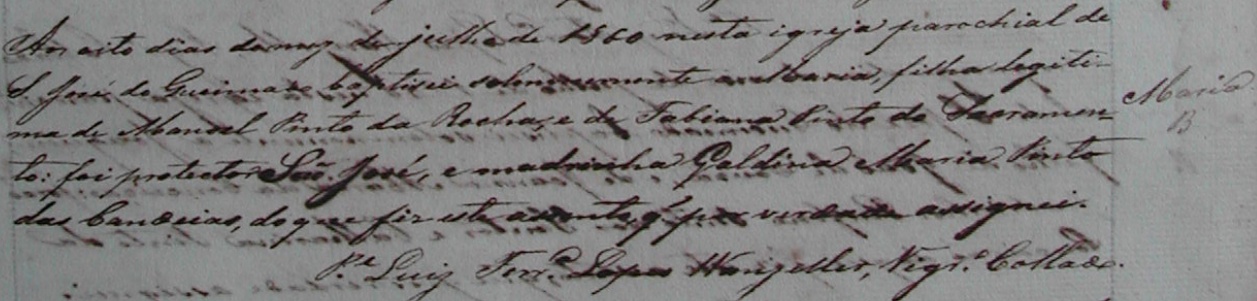 Aos oito dias do mez de julho de 1860 nesta igreja parochial de
S. José do Queimado baptisei solemnemente a Maria, filha legiti-
ma de Manoel Pinto da Rocha, e de Fabiana Pinto do Sacramen-
to: foi protector São José, e madrinha Galdina Maria Pinto
das Candeias, do que fiz este assento, q' por verdade assignei.
P.e Luiz Ferr.a Lopes Wanzeller, Vigr.o Collado.
Maria
B